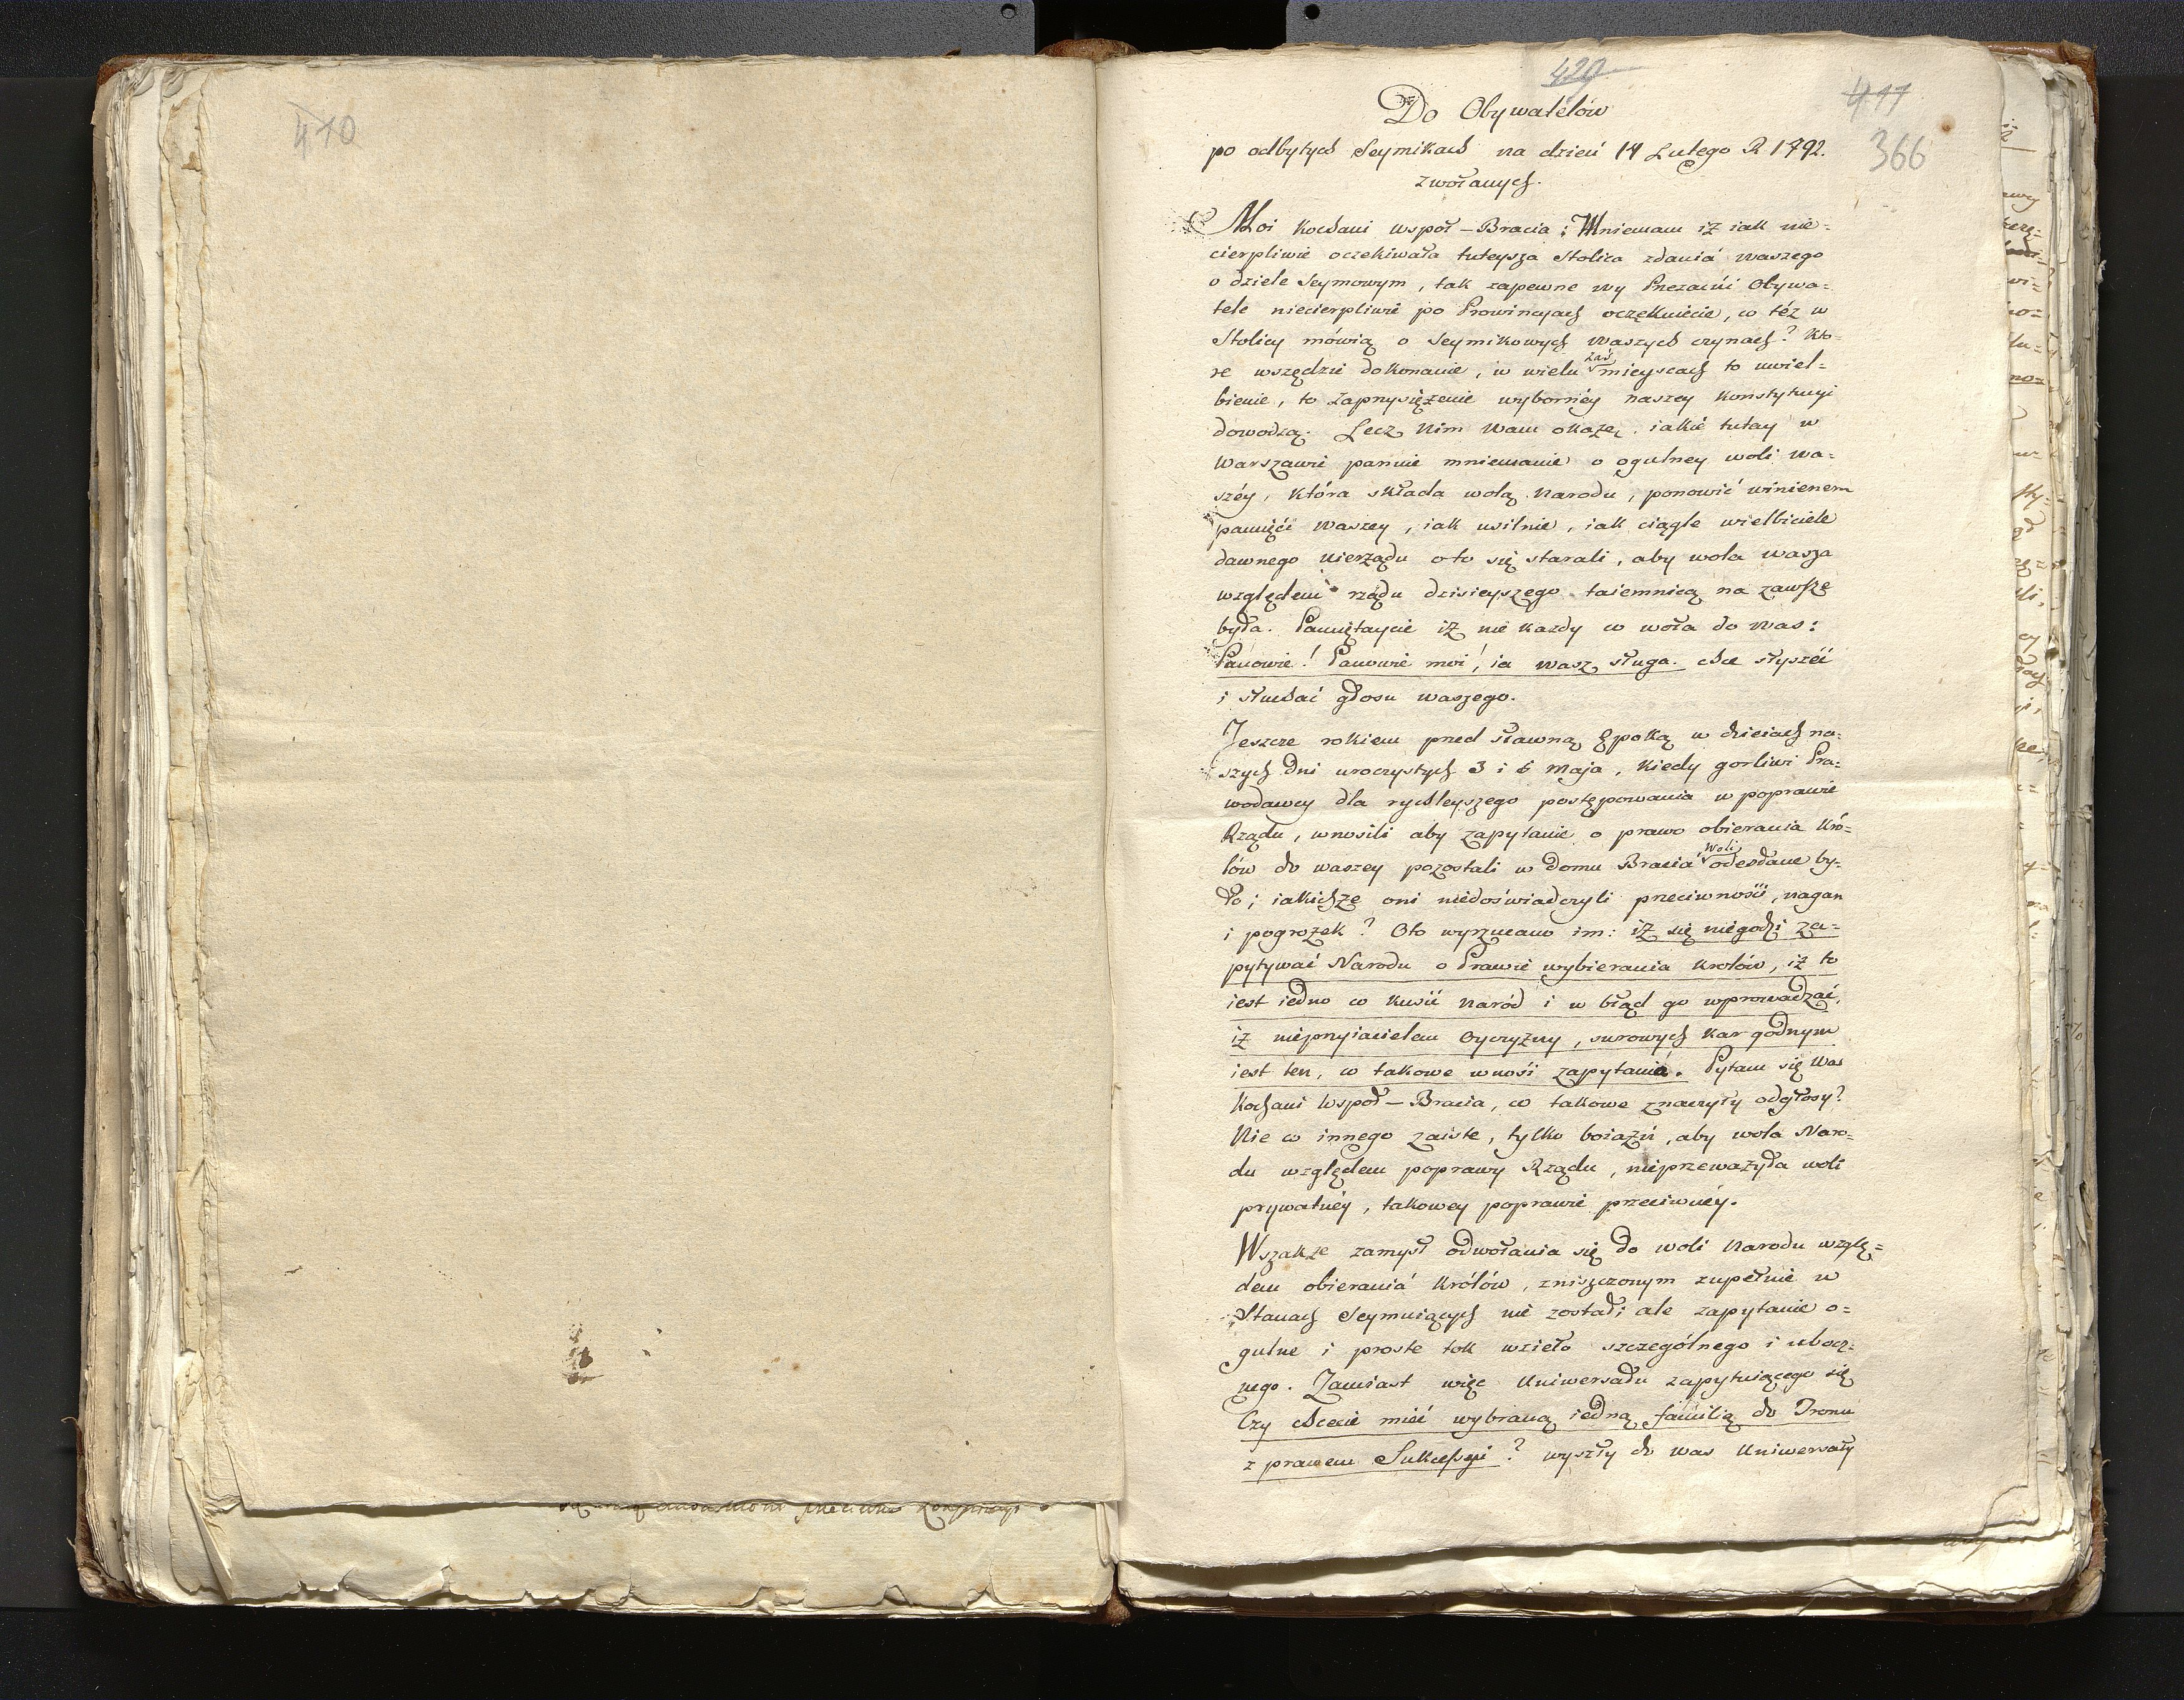 410
420
411
366
Do Obywatelów
po odbytych Seymikach na dzień 14 Lutego R 1792.
zwołanych.
Moi kochani wspoł-Bracia! Mniemam iż iak nie=
cierpliwie oczekiwała tuteysza Stolica zdania waszego
o dziele Seymowym, tak zapewne wy Przezacni Obywa=
tele niecierpliwie po Prowincyach oczekuiecie, co téż w
Stolicy mówią o Seymikowych waszych czynach? Kto=
re wszędzie dokonanie, w wielu zaś mieyscach to uwiel=
bienie, to zaprzysiężenie wyborney naszey Konstytucyi
dowodzą. Lecz nim wam okażę iakie tutay w
Warszawie panuie mniemanie o ogulney woli wa=
széy, która składa wolą Narodu, ponowić winienem
pamięci waszey, iak usilnie, iak ciągle wielbiciele
dawnego nierządu oto się starali, aby wola wasza
względem rządu dzisieyszego taiemnicą na zawsze
była. Pamiętaycie iż nie każdy co woła do was:
Panowie! Panowie moi, ia wasz sługa. chce słyszéć
i słuchać głosu waszego.
Jeszcze rokiem przed sławną Epoką w dzieiach na=
szych dni uroczystych 3 i 5 Maja, kiedy gorliwi Pra=
wodawcy dla rychleyszego postępowania w poprawie
Rządu, wnosili aby zapytanie o prawo obierania Kró=
lów do waszey pozostali w domu Bracia woli odesłane by=
ło; iakichże oni niedoświadczyli przeciwności, nagan
i pogrożek? Oto wyrzucano im: iż się niegodzi za=
pytywać Narodu o Prawie wybierania Krolów, iż to
iest iedno co kusić Naród i w błąd go wprowadzać,
iż nieprzyiacielem Oyczyzny, surowych kar godnym
iest ten, co takowe wnosi zapytania. Pytam się Was
Kochani Wspoł-Bracia, co takowe znaczyły odgłosy?
Nie co innego zaiste, tylko boiaźń, aby wola Naro=
du względem poprawy Rządu, nieprzeważyła woli
prywatnéy, takowey poprawie przeciwnéy.
Wszakże zamysł odwołania się do woli Narodu wzglę=
dem obierania Królów, zniszczonym zupełnie w
Stanach Seymuiących nie został; ale zapytanie o=
gulne i proste tok wzieło szczególnego i ubocz=
nego. Zamiast więc Uniwersału zapytuiącego się
Czy chcecie mieć wybraną iedną familią do Tronu
z prawem Sukcessyi? wyszły do was Uniwersały